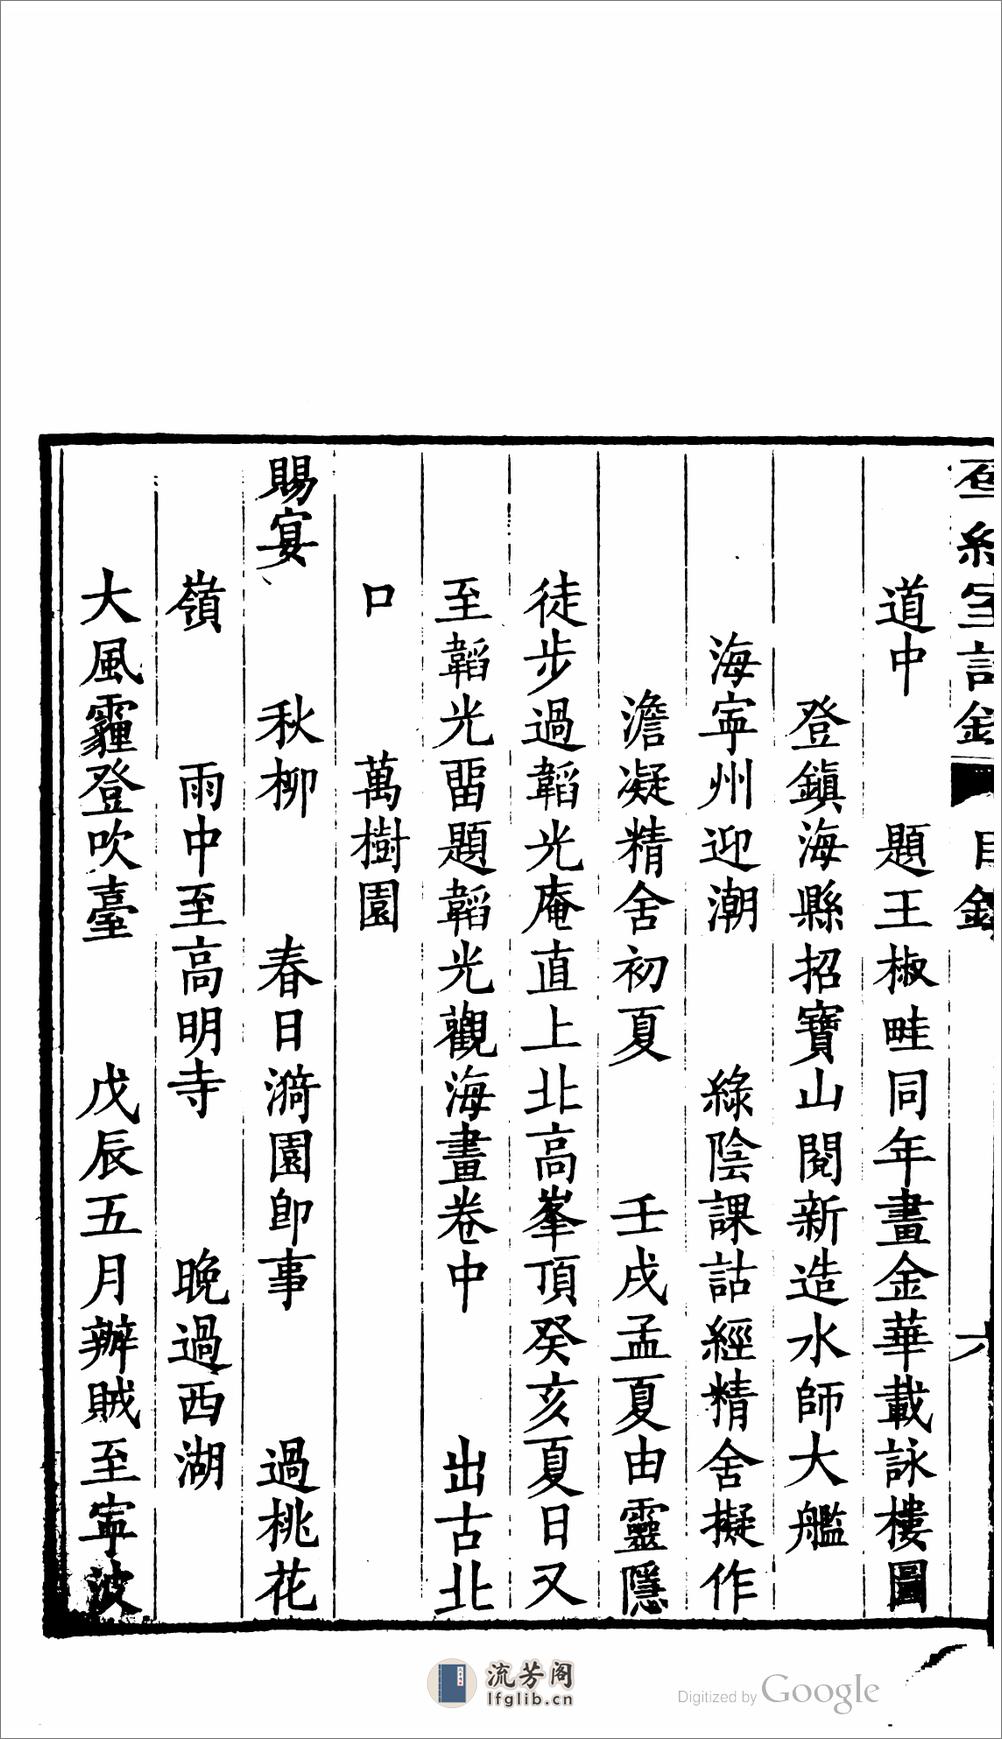 揅經室詩錄 目錄 六
道中 題王椒畦同年畫金華載詠樓圖
登鎮海縣招寶山閱新造水師大艦
海寧州迎潮 綠陰課詁經精舍擬作
澹凝精舍初夏 壬戌孟夏由靈隱
徒步過韜光庵直上北高峯頂癸亥夏日又
至韜光畱題韜光觀海畫卷中 出古北
口 萬樹園
賜宴 秋柳 春日漪園卽事 過桃花
嶺 雨中至高明寺 晚過西湖
大風霾登吹臺 戊辰五月辦賊至寧波
流芳阁
lfglib.cn
Digitized by Google